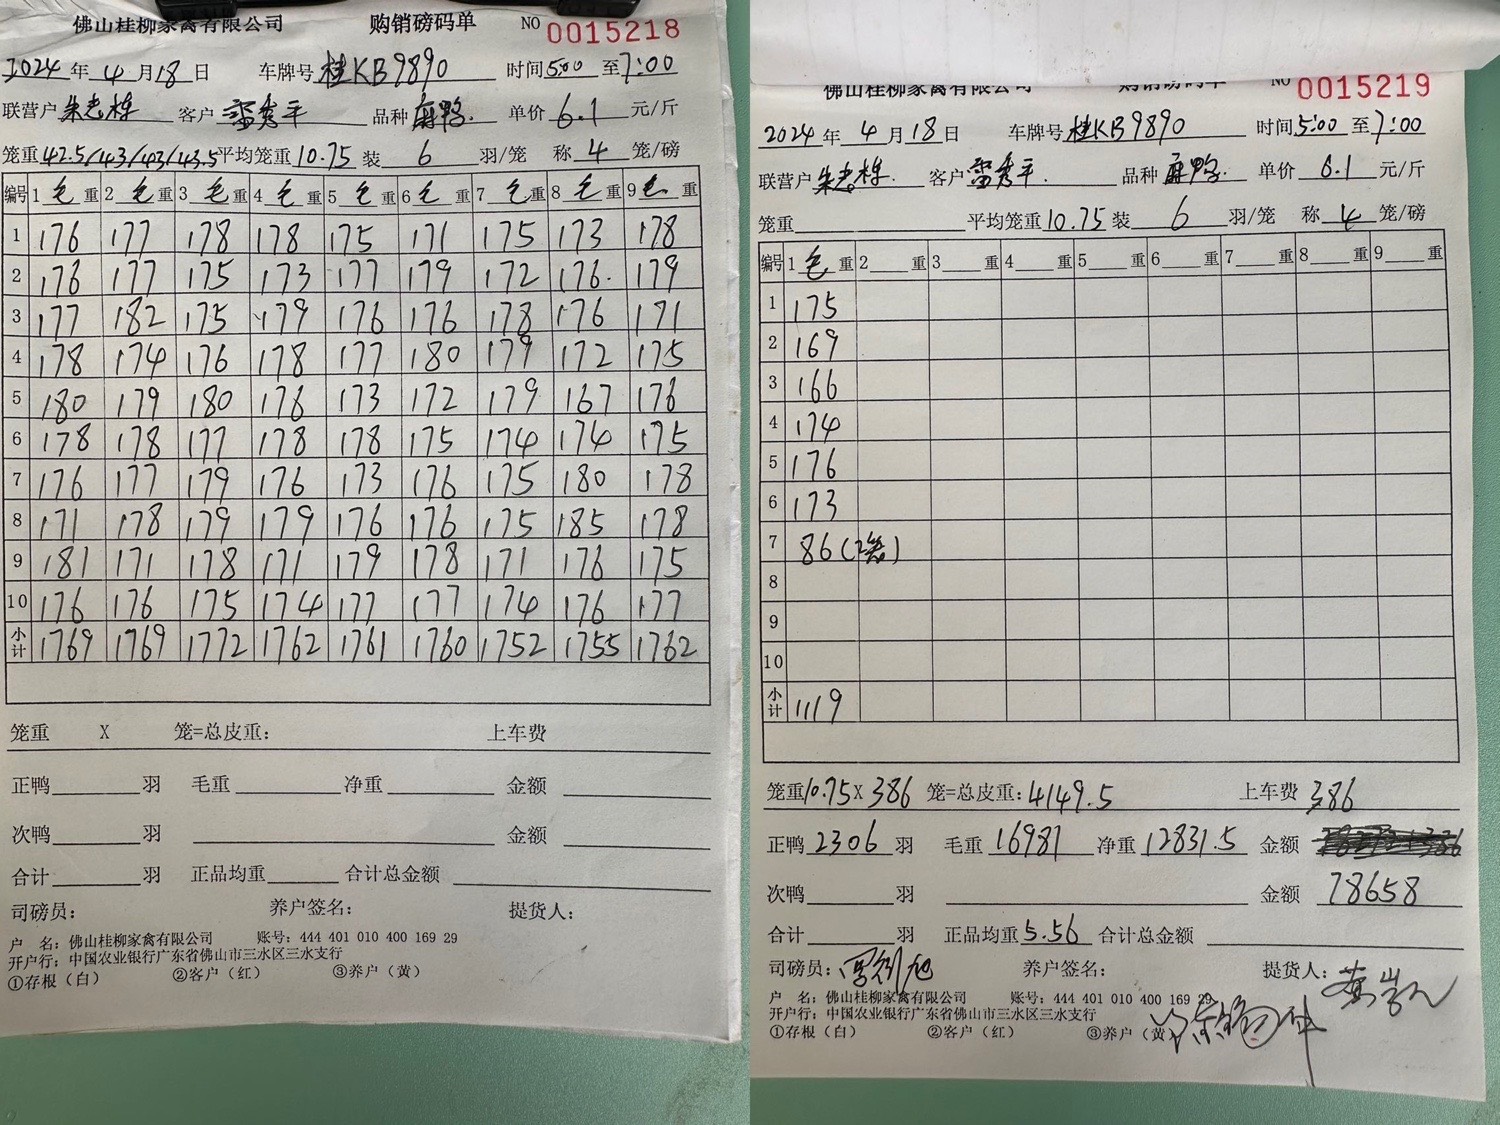 佛山桂柳家禽有限公司 购销磅码单 NO 0015218
2024年4月18日 车牌号桂KB9890 时间5:00至7:00
联营户 客户 品种麻鸭. 单价6.1元/斤
笼重42.5/43/43/43.5平均笼重10.75装6羽/笼 称4笼/磅
编号 1毛重 2毛重 3毛重 4毛重 5毛重 6毛重 7毛重 8毛重 9毛重
1 176 177 178 178 175 171 175 173 178
2 176 177 175 173 177 179 172 176. 179
3 177 182 175 179 176 176 178 176 171
4 178 174 176 178 177 180 179 172 175
5 180 179 180 176 173 172 179 167 176
6 178 178 177 178 178 175 174 174 175
7 176 177 179 176 173 176 175 180 178
8 171 178 179 179 176 176 175 185 178
9 181 171 178 171 179 178 171 176 175
10 176 176 175 174 177 177 174 176 177
小计 1769 1769 1772 1762 1761 1760 1752 1755 1762
笼重 X 笼=总皮重: 上车费
正鸭 羽 毛重 净重 金额
次鸭 羽 金额
合计 羽 正品均重 合计总金额
司磅员: 养户签名: 提货人:
户 名:佛山桂柳家禽有限公司 账号:444 401 010 400 169 29
开户行:中国农业银行广东省佛山市三水区三水支行
①存根(白) ②客户(红) ③养户(黄)
佛山桂柳家禽有限公司 购销磅码单 NO 0015219
2024年4月18日 车牌号桂KB9890 时间5:00至7:00
联营户 客户 品种麻鸭. 单价6.1元/斤
笼重 平均笼重10.75装6羽/笼 称4笼/磅
编号 1毛重 2重 3重 4重 5重 6重 7重 8重 9重
1 175
2 169
3 166
4 174
5 176
6 173
7 86(2笼)
8
9
10
小计 1119
笼重10.75X386笼=总皮重:4149.5 上车费386
正鸭2306羽 毛重16981净重12831.5 金额
次鸭 羽 金额78658
合计 羽 正品均重5.56 合计总金额
司磅员: 养户签名: 提货人:
户 名:佛山桂柳家禽有限公司 账号:444 401 010 400 169 29
开户行:中国农业银行广东省佛山市三水区三水支行
①存根(白) ②客户(红) ③养户(黄)